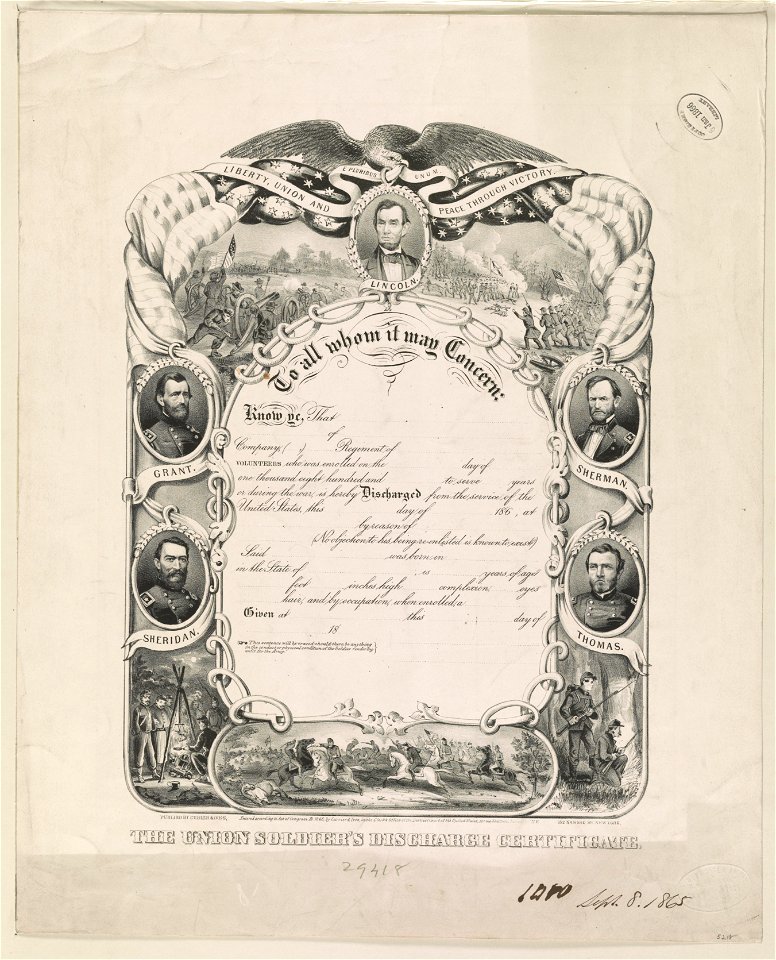 LIBERTY, UNION AND
E PLURIBUS UNUM.
PEACE THROUGH VICTORY.
LINCOLN.
To all whom it may Concern:
Know ye, That
of
Company, ( ) Regement of
VOLUNTEERS who was enrolled on the day of
one thousand eight hundred and to serve years
or during the war, is hereby Discharged from the service of the
United States, this day of 186 , at
by reason of
(No objection to his being re-enlisted is known to exist)
Said was born in
in the State of , is years of age
feet inches high complexion, eyes
hair, and by occupation, when enrolled, a
Given at this day of
18
This sentence will be erased should there be anything
in the conduct or physical condition of the Soldier rendering
unfit for the Army.
GRANT.
SHERMAN.
SHERIDAN.
THOMAS.
PUBLISHED BY CURRIER & IVES,
Entered according to Act of Congress
152 NASSAU ST. NEW YORK.
THE UNION SOLDIER'S DISCHARGE CERTIFICATE.
29418
Sept. 8. 1865